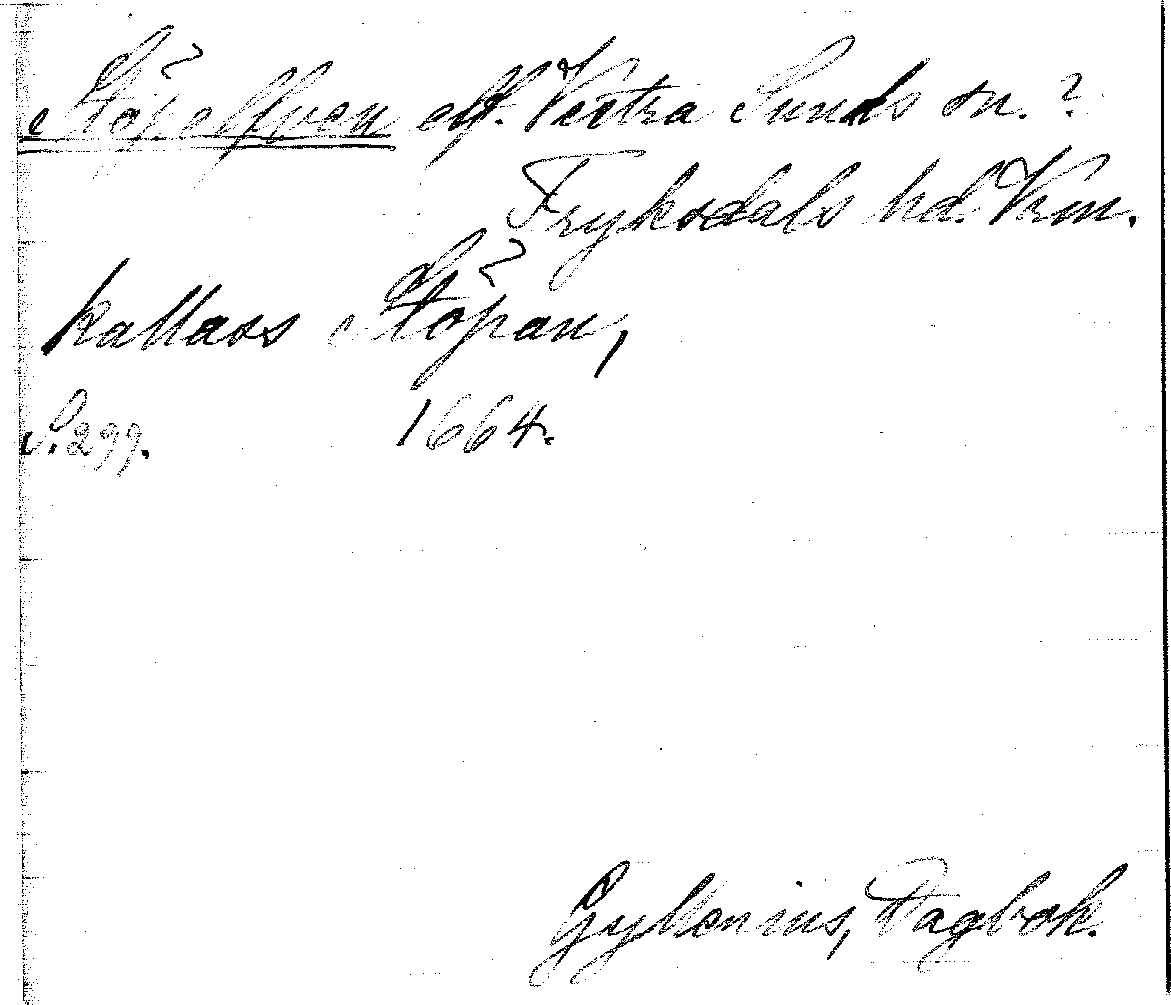 Stöpelfven elf. Vestra Sunds sn.?
Fryksdals hd. Vrm.
kallass Stöpan,
S. 299. 1664.
Gyllenius, Dagbok.